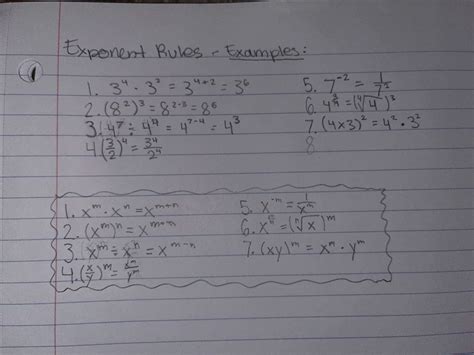 Exponent Rules - Examples:
1. 3⁴ · 3² = 3⁴⁺² = 3⁶
2. (8²)³ = 8²·³ = 8⁶
3. 4⁷ ÷ 4⁴ = 4⁷⁻⁴ = 4³
4. (3/2)⁴ = 3⁴/2⁴
5. 7⁻² = 1/7²
6. = (⁴√4)³
7. (4x3)² = 4² · 3²
8
1. xᵐ · xⁿ = xᵐ⁺ⁿ
2. (xᵐ)ⁿ =
3. xᵐ ÷ xⁿ = xᵐ⁻ⁿ
4. (x/y)ᵐ = xᵐ/yᵐ
5. x⁻ᵐ = 1/xᵐ
6. = (ⁿ√x)ᵐ
7. (xy)ᵐ = xᵐ · yᵐ